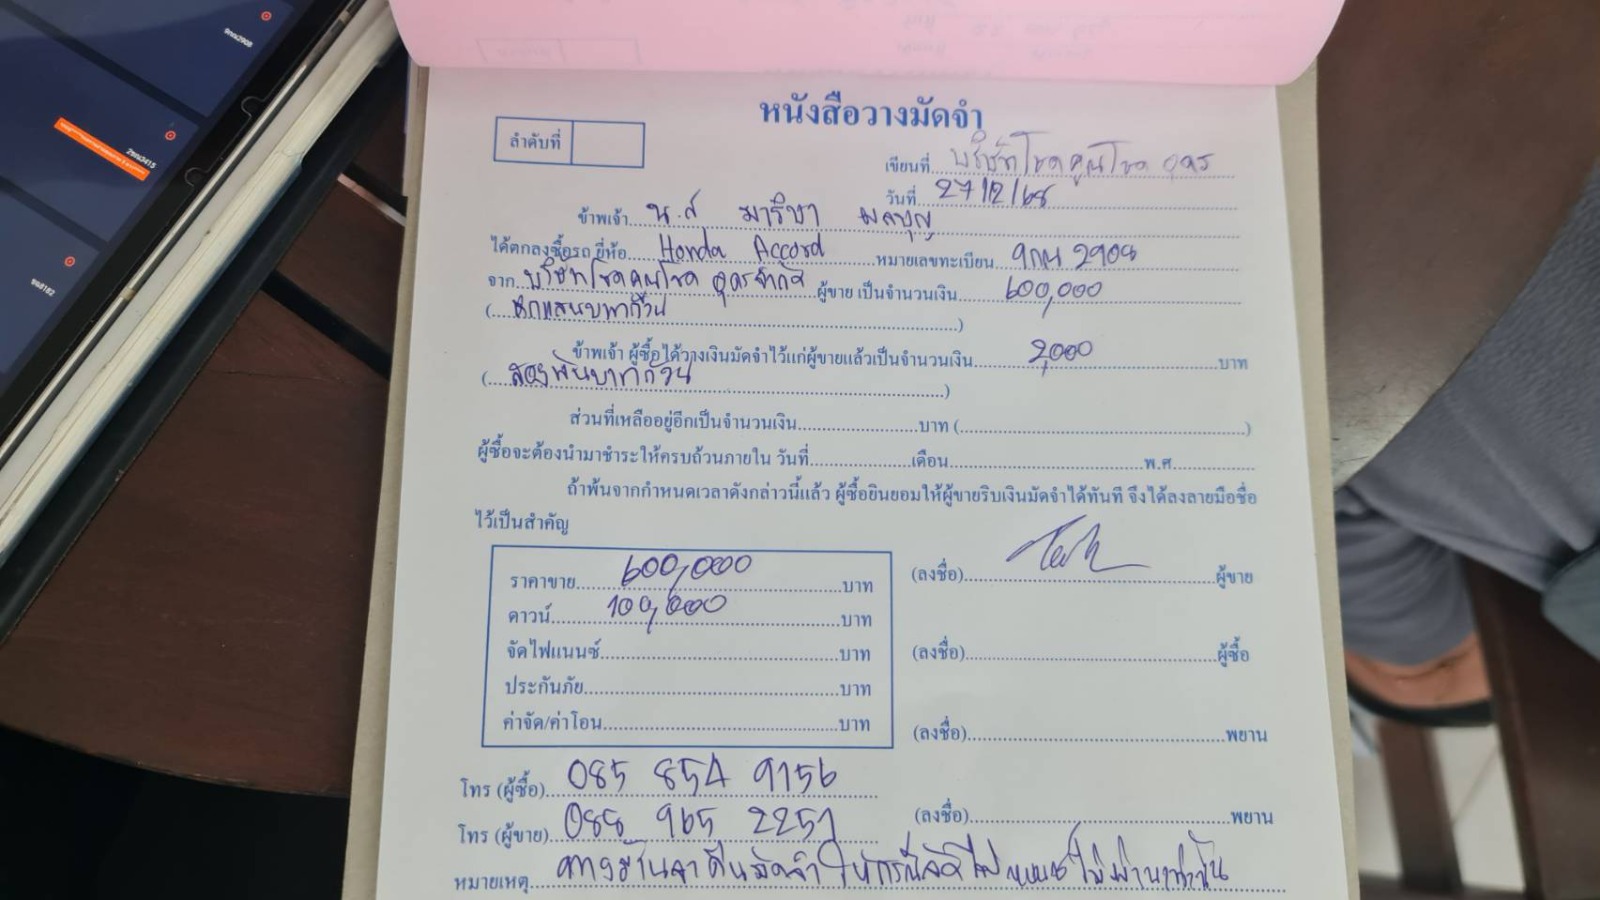 หนังสือวางมัดจำ
ลำดับที่
เขียนที่ บริษัทโชคคูณโชค อุดร
วันที่ 27/12/68
ข้าพเจ้า น.ส มาริษา มลบุญ
ได้ตกลงซื้อรถ ยี่ห้อ Honda Accord หมายเลขทะเบียน 9กฒ 2908
จาก บริษัทโชคคูณโชค อุดรจำกัด ผู้ขาย เป็นจำนวนเงิน 600,000
( หกแสนบาทถ้วน )
ข้าพเจ้า ผู้ซื้อได้วางเงินมัดจำไว้แก่ผู้ขายแล้วเป็นจำนวนเงิน 2,000 บาท
( สองพันบาทถ้วน )
ส่วนที่เหลืออยู่อีกเป็นจำนวนเงิน บาท ( )
ผู้ซื้อจะต้องนำมาชำระให้ครบถ้วนภายใน วันที่ เดือน พ.ศ.
ถ้าพ้นจากกำหนดเวลาดังกล่าวนี้แล้ว ผู้ซื้อยินยอมให้ผู้ขายริบเงินมัดจำได้ทันที จึงได้ลงลายมือชื่อ
ไว้เป็นสำคัญ
ราคาขาย 600,000 บาท
ดาวน์ 100,000 บาท
จัดไฟแนนซ์ บาท
ประกันภัย บาท
ค่าจัด/ค่าโอน บาท
(ลงชื่อ) ผู้ขาย
(ลงชื่อ) ผู้ซื้อ
(ลงชื่อ) พยาน
โทร (ผู้ซื้อ) 085 854 9156
โทร (ผู้ขาย) 088 965 2251
(ลงชื่อ) พยาน
หมายเหตุ ทางร้านจะคืนมัดจำในกรณีจัดไฟแนนซ์ไม่ผ่านเท่านั้น